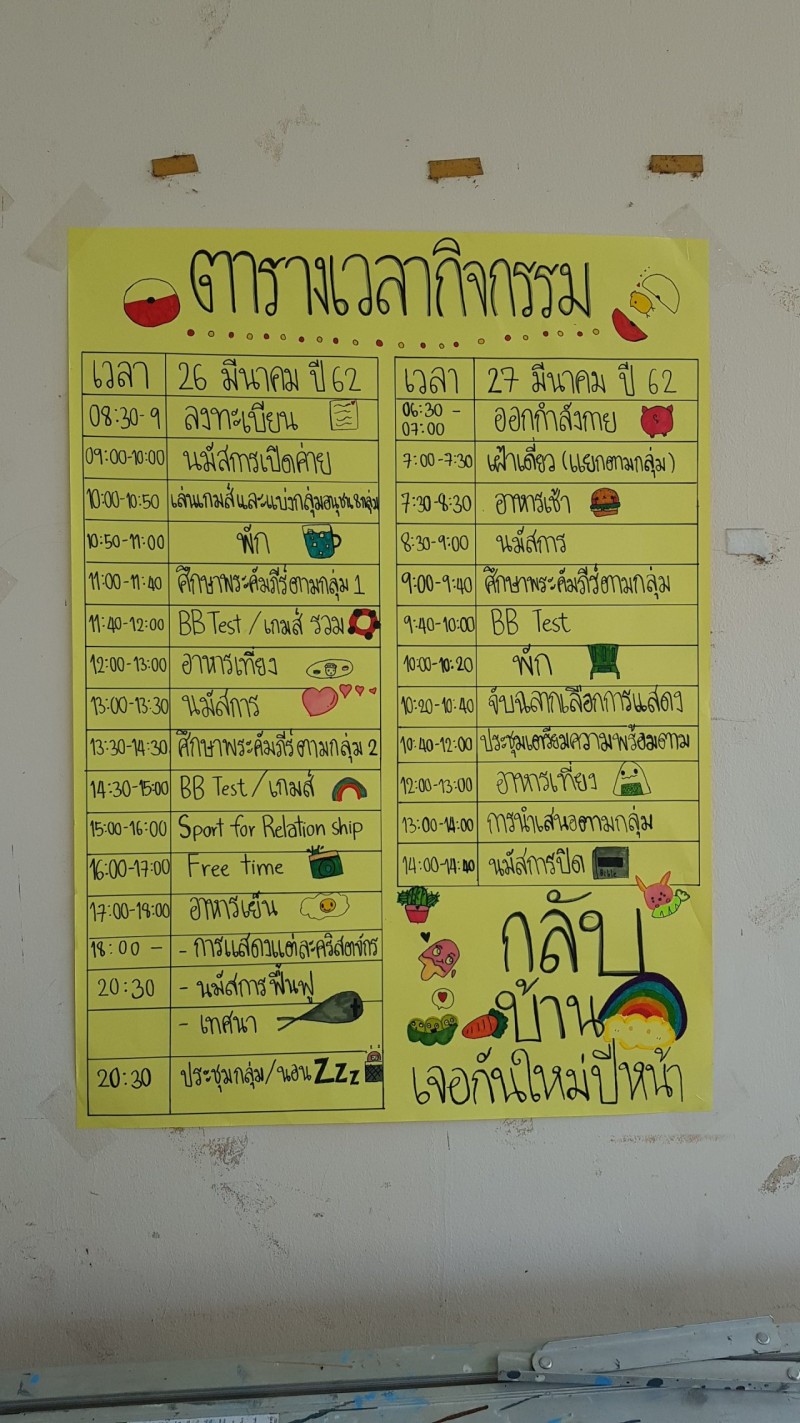 ตารางเวลากิจกรรม
เวลา 26 มีนาคม ปี 62
08:30-9 ลงทะเบียน
09:00-10:00 นมัสการเปิดค่าย
10:00-10:50 เล่นเกมส์และแบ่งกลุ่มอนุชน 8 กลุ่ม
10:50-11:00 พัก
11:00-11:40 ศึกษาพระคัมภีร์ตามกลุ่ม 1
11:40-12:00 BB Test / เกมส์ รวม
12:00-13:00 อาหารเที่ยง
13:00-13:30 นมัสการ
13:30-14:30 ศึกษาพระคัมภีร์ตามกลุ่ม 2
14:30-15:00 BB Test / เกมส์
15:00-16:00 Sport for Relation ship
16:00-17:00 Free time
17:00-18:00 อาหารเย็น
18:00 - - การแสดงแต่ละคริสตจักร
20:30 - นมัสการฟื้นฟู
- เทศนา
20:30 ประชุมกลุ่ม/นอน Zzz
เวลา 27 มีนาคม ปี 62
06:30 -
07:00 ออกกำลังกาย
7:00-7:30 เฝ้าเดี่ยว (แยกตามกลุ่ม)
7:30-8:30 อาหารเช้า
8:30-9:00 นมัสการ
9:00-9:40 ศึกษาพระคัมภีร์ตามกลุ่ม
9:40-10:00 BB Test
10:00-10:20 พัก
10:20-10:40 จับฉลากเลือกการแสดง
10:40-12:00 ประชุมเตรียมความพร้อมตาม
12:00-13:00 อาหารเที่ยง
13:00-14:00 การนำเสนอตามกลุ่ม
14:00-14:40 นมัสการปิด
Bible
กลับ
บ้าน
เจอกันใหม่ปีหน้า